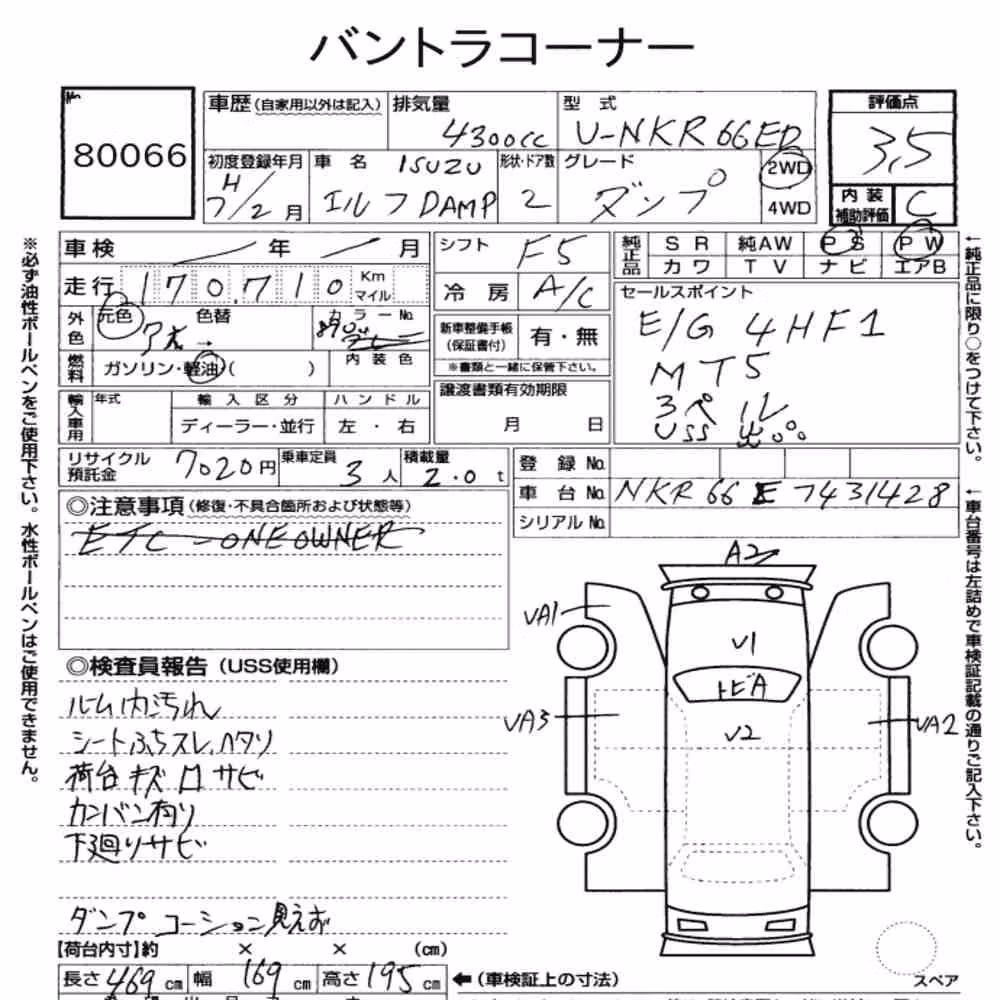 バントラコーナー
No.
80066
車歴(自家用以外は記入)
排気量
4300cc
型式
U-NKR66ED
評価点
3.5
初度登録年月
H
7/2月
車名
ISUZU
エルフDAMP
形状・ドア数
2
グレード
ダンプ
2WD
4WD
内装
補助評価
C
車検 / 年 / 月
シフト F5
純正品
SR 純AW PS PW
カワ TV ナビ エアB
走行 170,710 Km
マイル
冷房 A/C
セールスポイント
E/G 4HF1
MT5
3ペル
USS
外色
元色
色替
カラーNo.
→
新車整備手帳
(保証書付)
有・無
※書類と一緒に保管下さい。
燃料
ガソリン・軽油・( )
内装色
譲渡書類有効期限
月 日
輸入車用
年式
輸入区分
ハンドル
ディーラー・並行
左・右
リサイクル
預託金
7020円
乗車定員
3人
積載量
2.0t
登録No.
車台No. NKR66E7431428
シリアルNo.
◎注意事項(修復・不具合箇所および状態等)
ETC - ONE OWNER
◎検査員報告(USS使用欄)
ルーム内汚れ
シートふちスレ、ヘタリ
荷台キズ ロ サビ
カンバン有り
下廻りサビ
ダンプコーション見えず
A2
VA1
V1
トビA
VA3
V2
VA2
【荷台内寸】約 × × (cm)
長さ469cm 幅169cm 高さ195cm
←(車検証上の寸法)
スペア
※必ず油性ボールペンをご使用下さい。水性ボールペンはご使用できません。
←純正品に限り○をつけて下さい。
←車台番号は左詰めで車検証記載の通りご記入下さい。